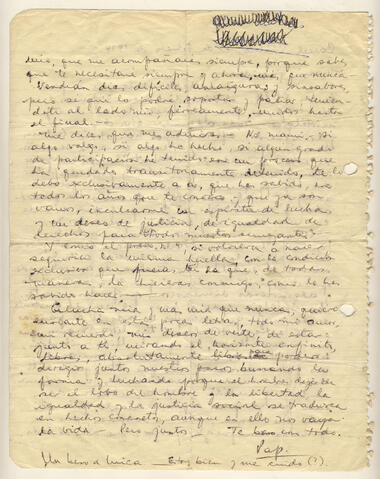 mía, que me acompañaras siempre, porque sabes
que te necesitaré siempre y ahora, más que nunca
Vendrán días difíciles, amargura y sinsabores,
pero sé que lo podré soportar
a mi lado mía, unidos hasta
el final
me dices que me admiras. No mami. Si
algo valgo, si algo he hecho, si algún grado
de participación he tenido en un proceso que
ha quedado transitoriamente detenido, te lo
debo exclusivamente a vos, que has sabido, en
todos los años que te conozco, que ya son
varios, inculcarme un espíritu de lucha
y un deseo de justicia, de igualdad de
derechos para todos nuestros semejantes
Y como el poeta, si volviera a nacer
seguiría la misma huella, con la condición
exclusiva que de todas
maneras, la hicieras conmigo, como lo has
sabido hacer.
mía, más mía que nunca, quiero
en estas pocas letras, todo mi amor
mi recuerdo, mis deseos de verte, de estar
junto a ti, mirando el horizonte infinito,
libres, absolutamente libres para poder
dirigir juntos nuestros pasos buscando la
forma y luchando porque el hombre deje de
ser el lobo del hombre y la libertad la
igualdad y la justicia social se traduzca
en hechos concretos, aunque en ello nos vaya
la vida. Pero juntos. Te beso con todo.
Pap.
Un beso a Mica - Estoy bien y me cuido (?).